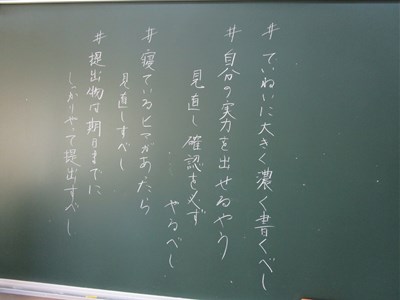 # ていねいに大きく濃く書くべし
# 自分の実力を出せるやう
見直し確認を必ず
やるべし
# 寝ているヒマがあったら
見直しすべし
# 提出物は期日までに
しっかりやって提出すべし